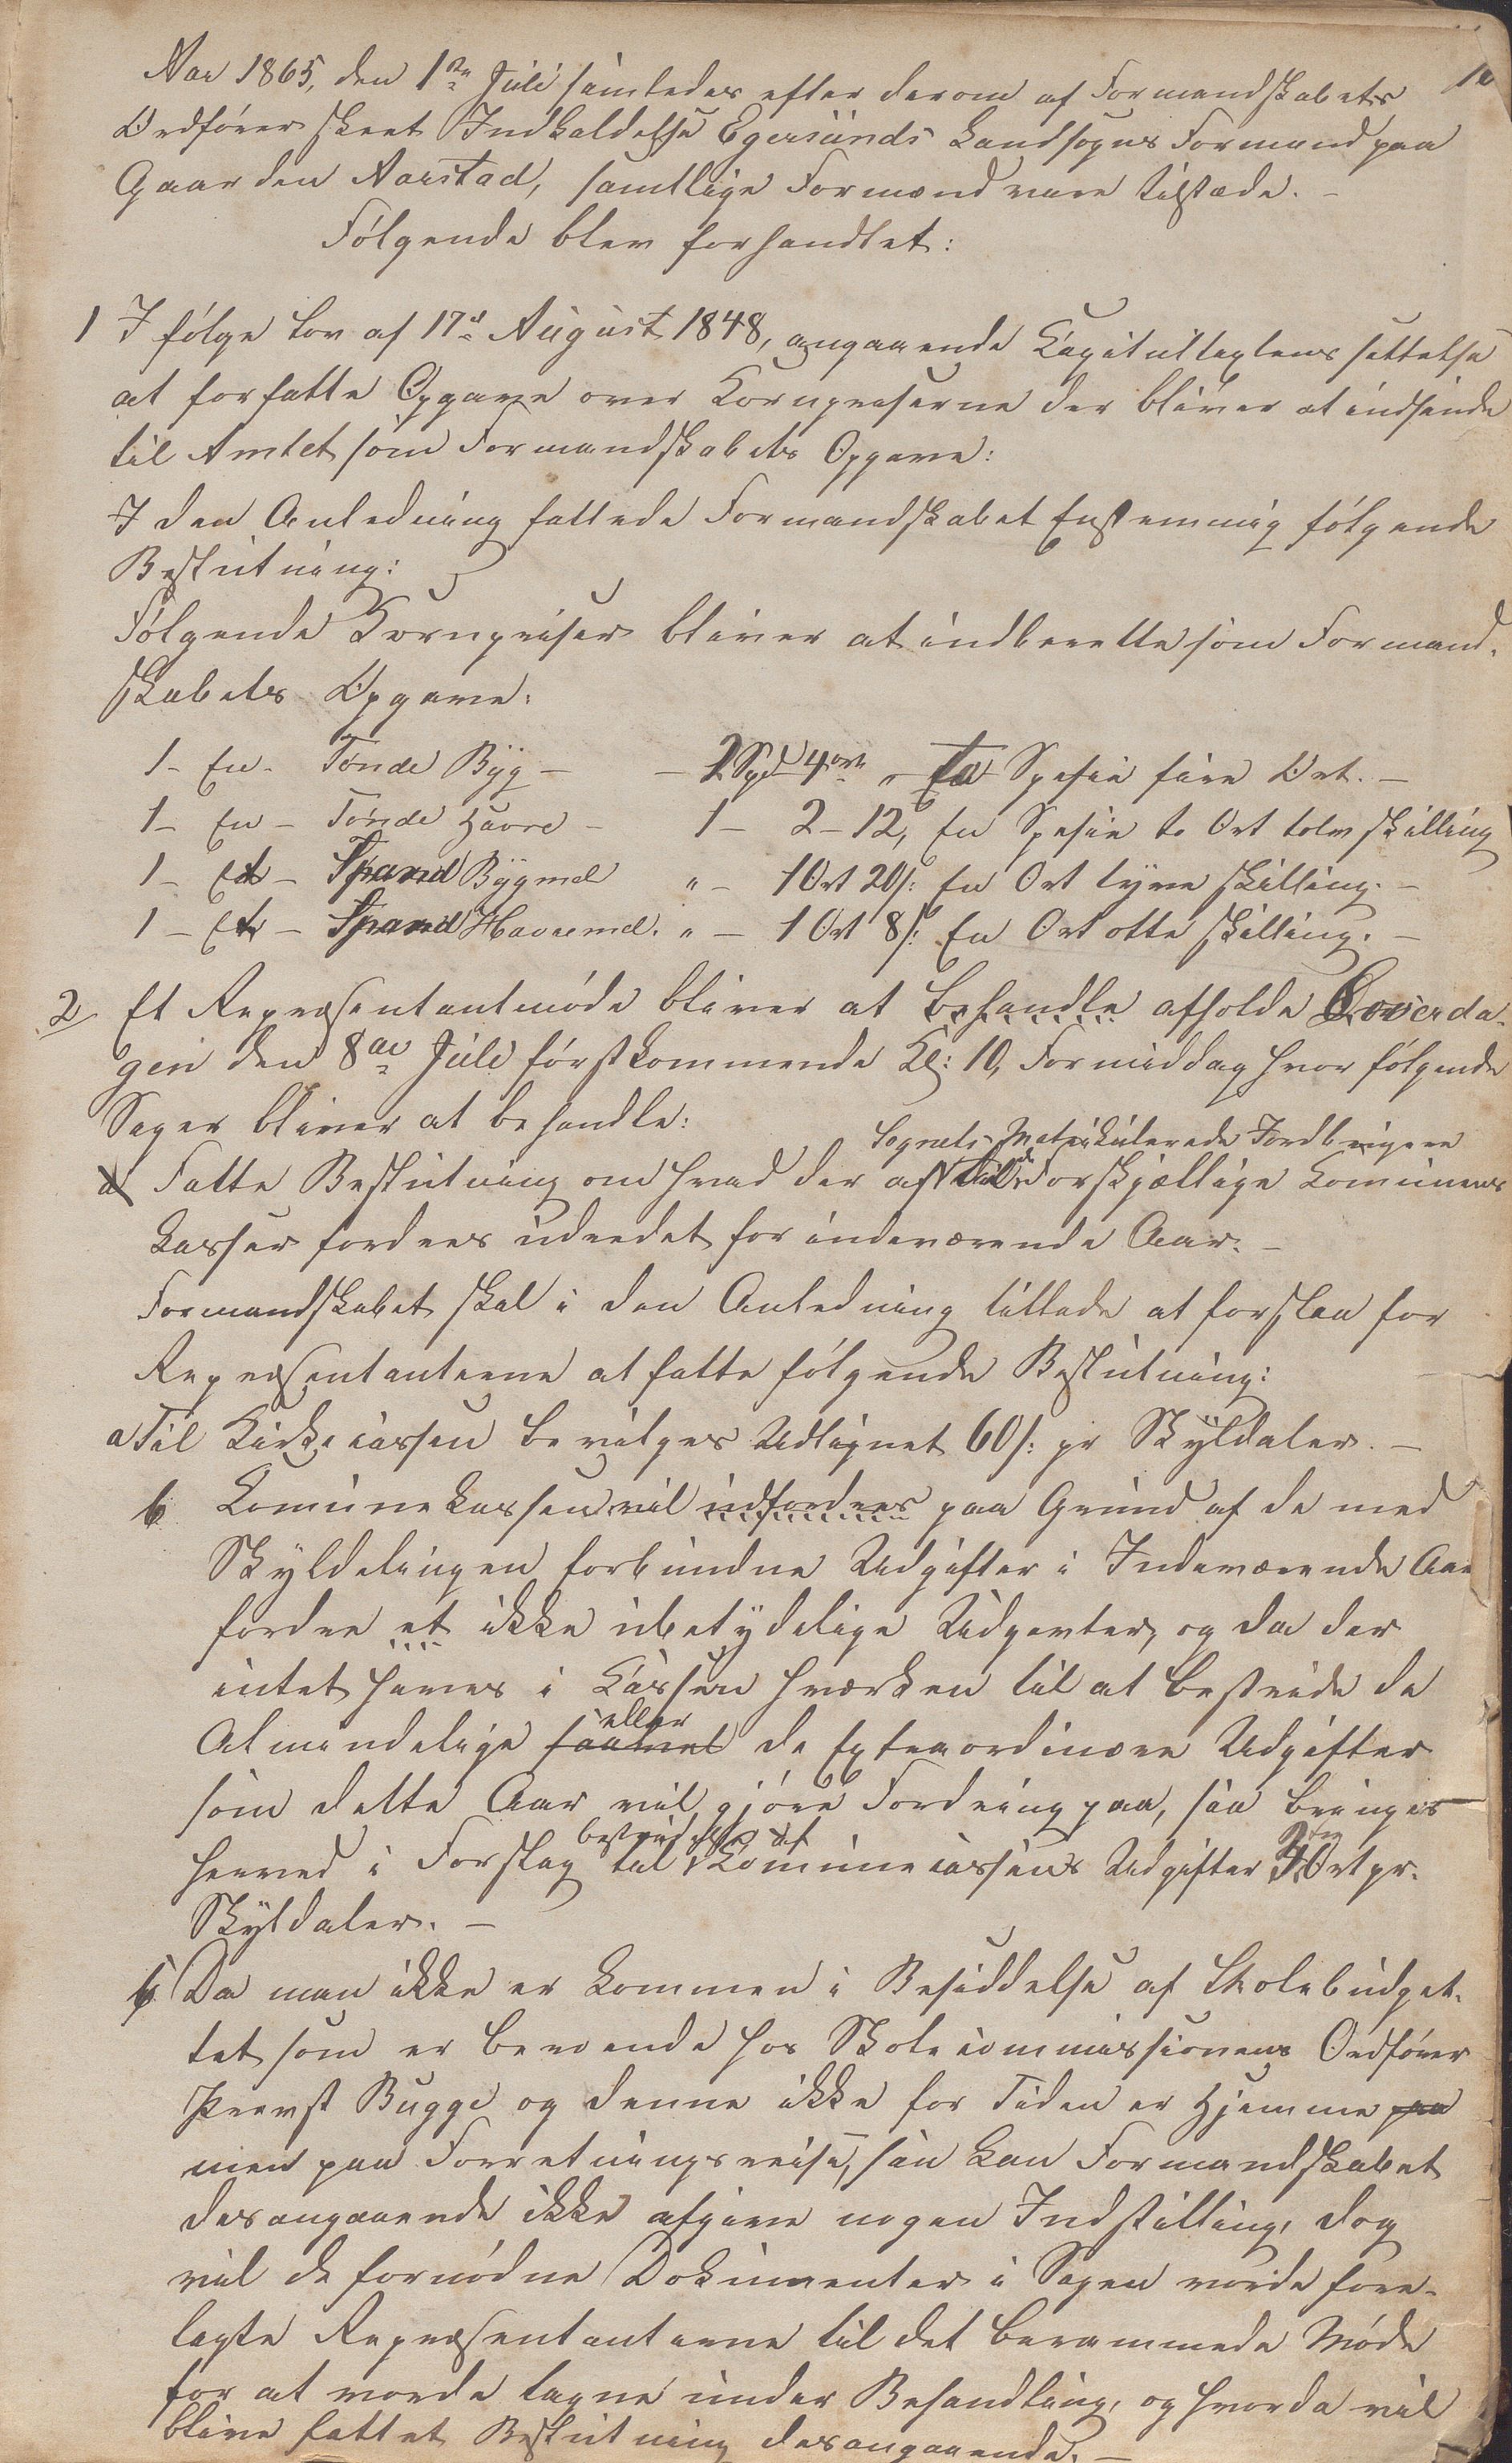 10
Aar 1865, den 1ste Juli samledes efter derom af Formandskabets
Ordfører skeet Indkaldelse Egersunds Landsogns Formænd paa
Gaarden Aarstad, samtlige Formænd vare tilstæde. –
Følgende blev forhandlet:
1 I følge Lov af 17d August 1848, angaaende Capitultaxtens settelse
at forfatte Opgave over Kornpriserne der bliver at indsende
til Amtet som Formandskabets Opgave:
I den Anledning fattede Formandskabet Enstemmig følgende
Beslutning:
Følgende Kornpriser bliver at indberette som Formand-
skabets Opgave:
1 – En – Tønde Byg – – 2 Spd 4ort „ To Spesie fire Ort. –
1 – En – Tønde Havre – 1 – 2 – 12, En Spesie to Ort tolv skilling
1 – Et – Spand Bygmel „ – 1 Ort 20 s: En Ort tyve skilling. –
1 – Et – Spand Havremel. „ – 1 Ort 8 s: En Ort otte skilling. –
2 Et Repræsentantmøde bliver at behandle afholde Løverda-
gen den 8de Juli førstkommende Kl: 10, Formiddag hvor følgende
Sager bliver at behandle:
Sognets Matrikulerede Jordbrugere
a Fatte Beslutning om hvad der af til de Forskjællige Comunens
Kasser fordres udredet for indeværende Aar. –
Formandskabet skal i den Anledning tillade at forslaa for
Repræsentanterne at fatte følgende Beslutning:
a Til Kirkecassen bevilges Udlignet 60 s: pr Skyldaler. –
b Komunekassen vil udfordres paa Grund af de med
Skyldelingen forbundne Udgifter i Indeværende Aar
fordre et ikke ubetydelige Udgevter, og da der
intet haves i Cassen hværken til at bestride de
eller
Almindelige saavel de Extraordinære Udgifter
som dette Aar vil gjøre Fordring paa, saa bringes
bestridelse af
herved i Forslag til Comunecassens Udgifter 3 Ort pr.
Skyldaler. –
c Da man ikke er kommen i Besiddelse af Skolebudget-
tet som er beroende hos Skolecommissionens Ordfører
Provst Bugge og denne ikke for Tiden er Hjemme paa
men paa Forretningsreise, saa kan Formandskabet
desangaaende ikke afgive nogen Indstilling, dog
vil de fornødne Dokumenter i Sagen vorde fore-
lagte Repræsentanterne til det berammede Møde
for at vorde tagne under Behandling, og hvorda vil
blive fattet Beslutning desangaaende. –